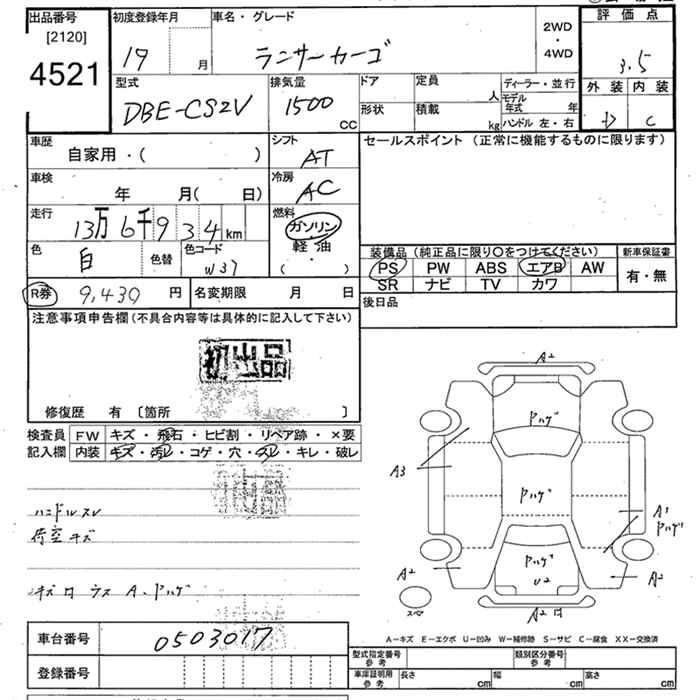 出品番号
[2120]
4521
初度登録年月
19
月
車名・グレード
ランサーカーゴ
2WD
・
4WD
評価点
3.5
外装 内装
D C
型式
DBE-CS2V
排気量
1500
CC
ドア
定員
人
形状
積載
kg
ディーラー・並行
モデル
年式 年
ハンドル 左・右
車歴
自家用・( )
シフト
AT
セールスポイント (正常に機能するものに限ります)
車検
年 月( 日)
冷房
AC
走行
13万6千934km
燃料
ガソリン
軽油
( ・ )
色
白
色替
色コード
W37
装備品 (純正品に限り○をつけてください)
新車保証書
PS PW ABS エアB AW
有・無
SR ナビ TV カワ
R券
9,430円
名変期限 月 日
後日品
注意事項申告欄 (不具合内容等は具体的に記入して下さい)
初出品
修復歴 有 〔箇所 〕
検査員
記入欄
FW キズ・飛石・ヒビ割・リペア跡・×要
内装 キズ・汚レ・コゲ・穴・スレ・キレ・破レ
ハンドルスレ
荷室キズ
A2
ドハゲ
A3
ドハゲ
A1
ドハゲ
ドハゲ
U2
A2
A2
スペア
A2
A-キズ E-エクボ U-凹み W-補修跡 S-サビ C-腐食 XX-交換済
車台番号
0503017
登録番号
型式指定番号
参考
類別区分番号
参考
車庫証明用
参考
長さ cm
幅 cm
高さ cm